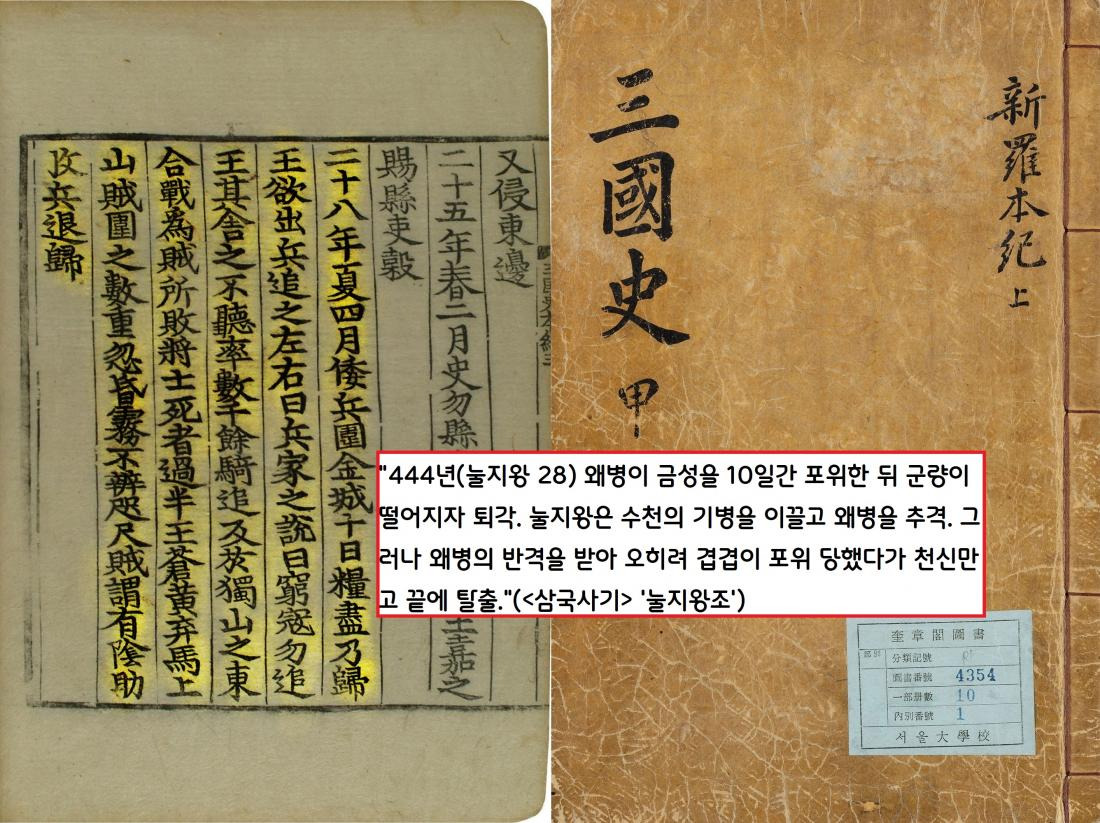 又侵東邊
二十五年春二月史勿縣 王嘉之
賜縣吏穀
二十八年夏四月倭兵圍金城十日糧盡乃歸
王欲出兵追之左右曰兵家之說曰窮宼勿追
王其舍之不聽率數千餘騎追及扵獨山之東
合戰為賊所敗將士死者過半王蒼黃弃馬上
山賊圍之數重忽昏霧不辨咫尺賊謂有陰助
收兵退歸
新羅本紀 上
三國史 甲
"444년(눌지왕 28) 왜병이 금성을 10일간 포위한 뒤 군량이
떨어지자 퇴각. 눌지왕은 수천의 기병을 이끌고 왜병을 추격. 그
러나 왜병의 반격을 받아 오히려 겹겹이 포위 당했다가 천신만
고 끝에 탈출."(<삼국사기> '눌지왕조')
奎章閣圖書
分類記號
圖書番號 4354
一部册數 10
內別番號 1
서울大學校